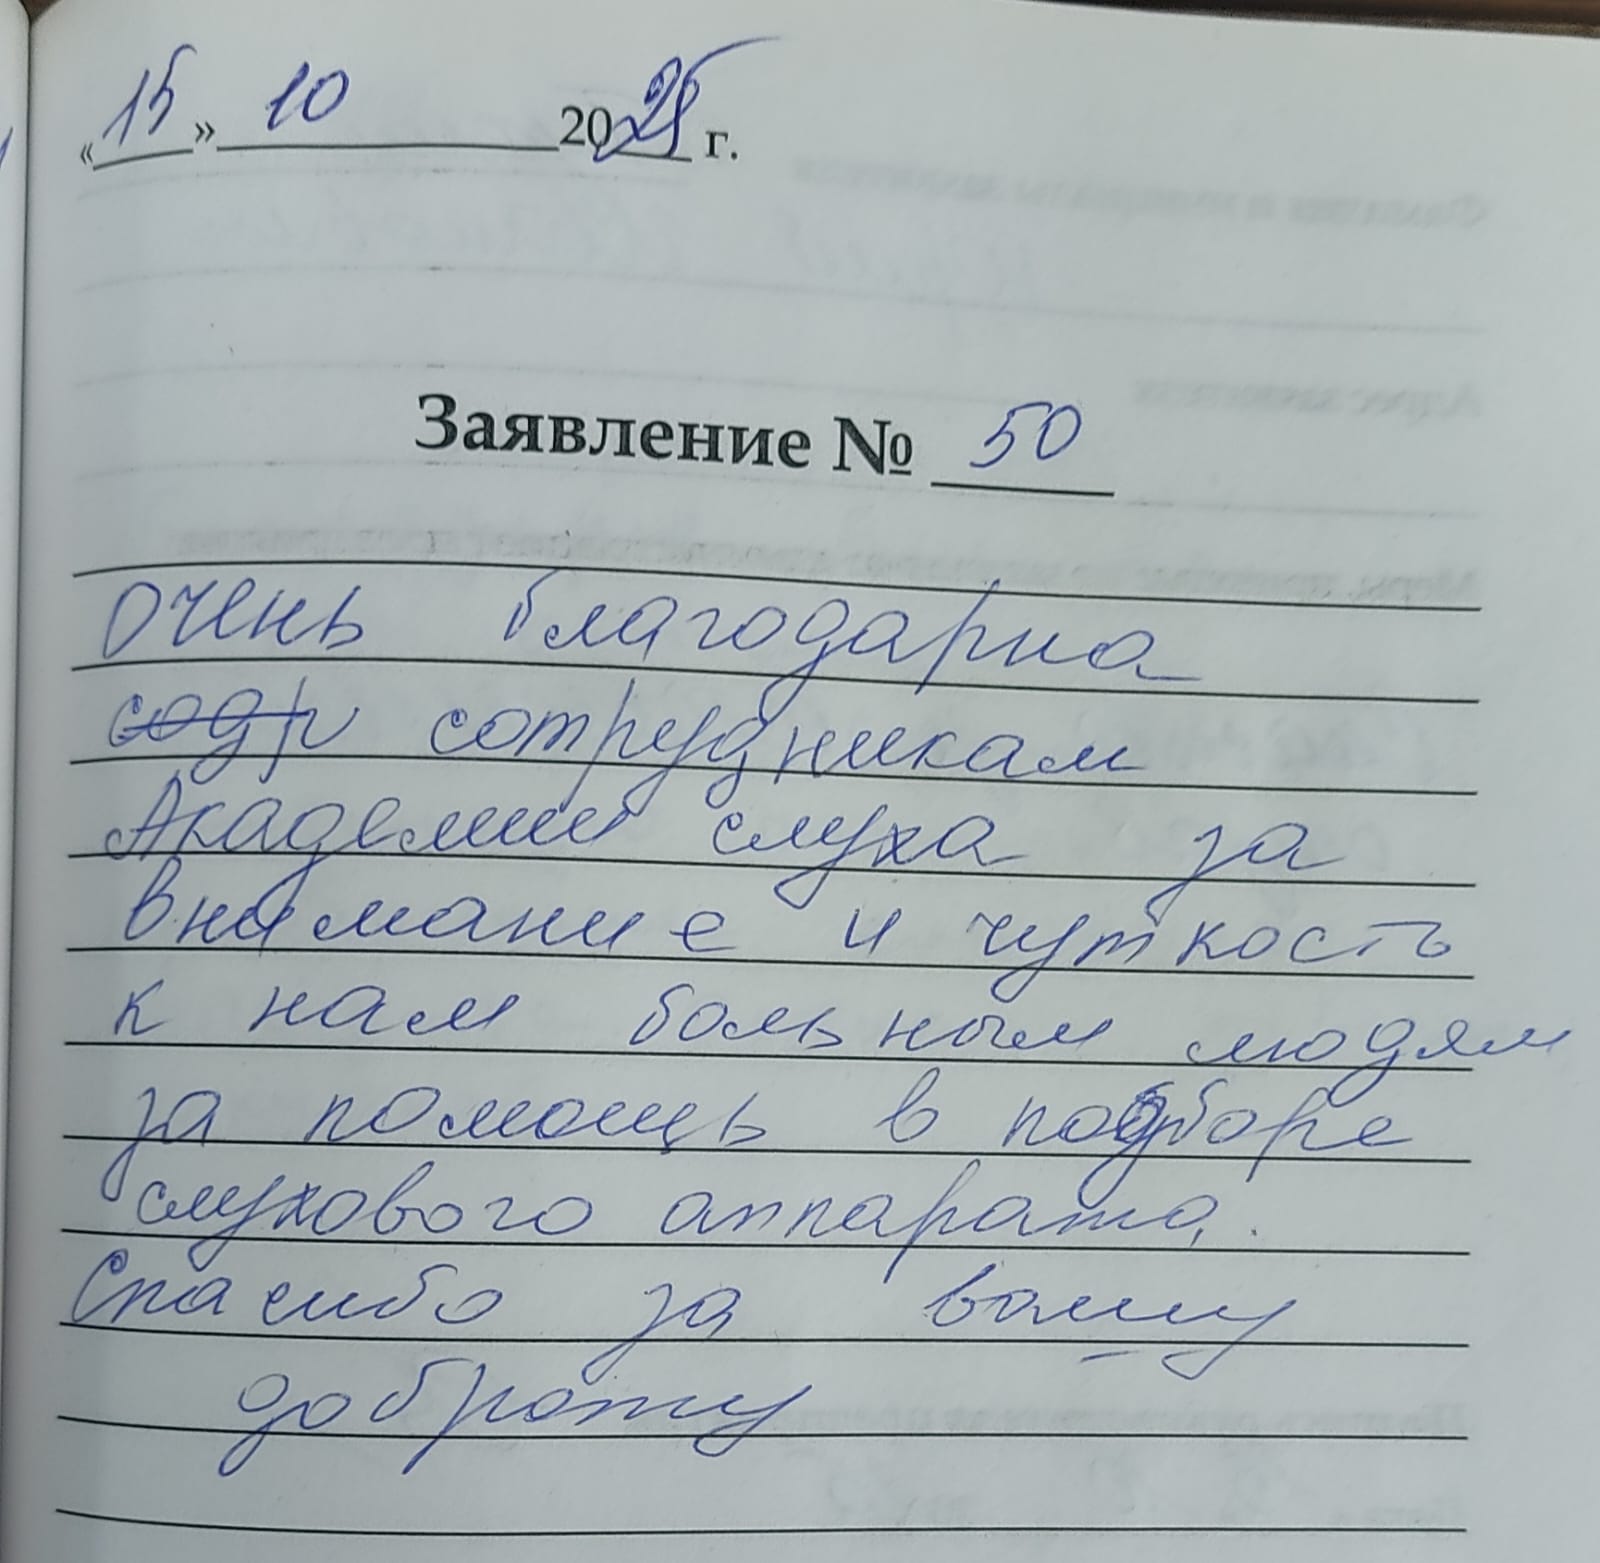 «15» 10 2025 г.
Заявление № 50
Очень благодарна
сотрудникам
Академии слуха за
внимание и чуткость
к нам больным людям
за помощь в подборе
слухового аппарата.
Спасибо за вашу
доброту